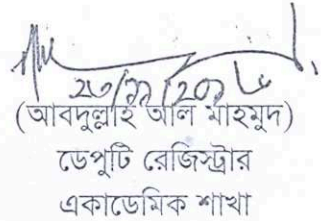 (আবদুল্লাহ আল মাহমুদ)
ডেপুটি রেজিস্ট্রার
একাডেমিক শাখা